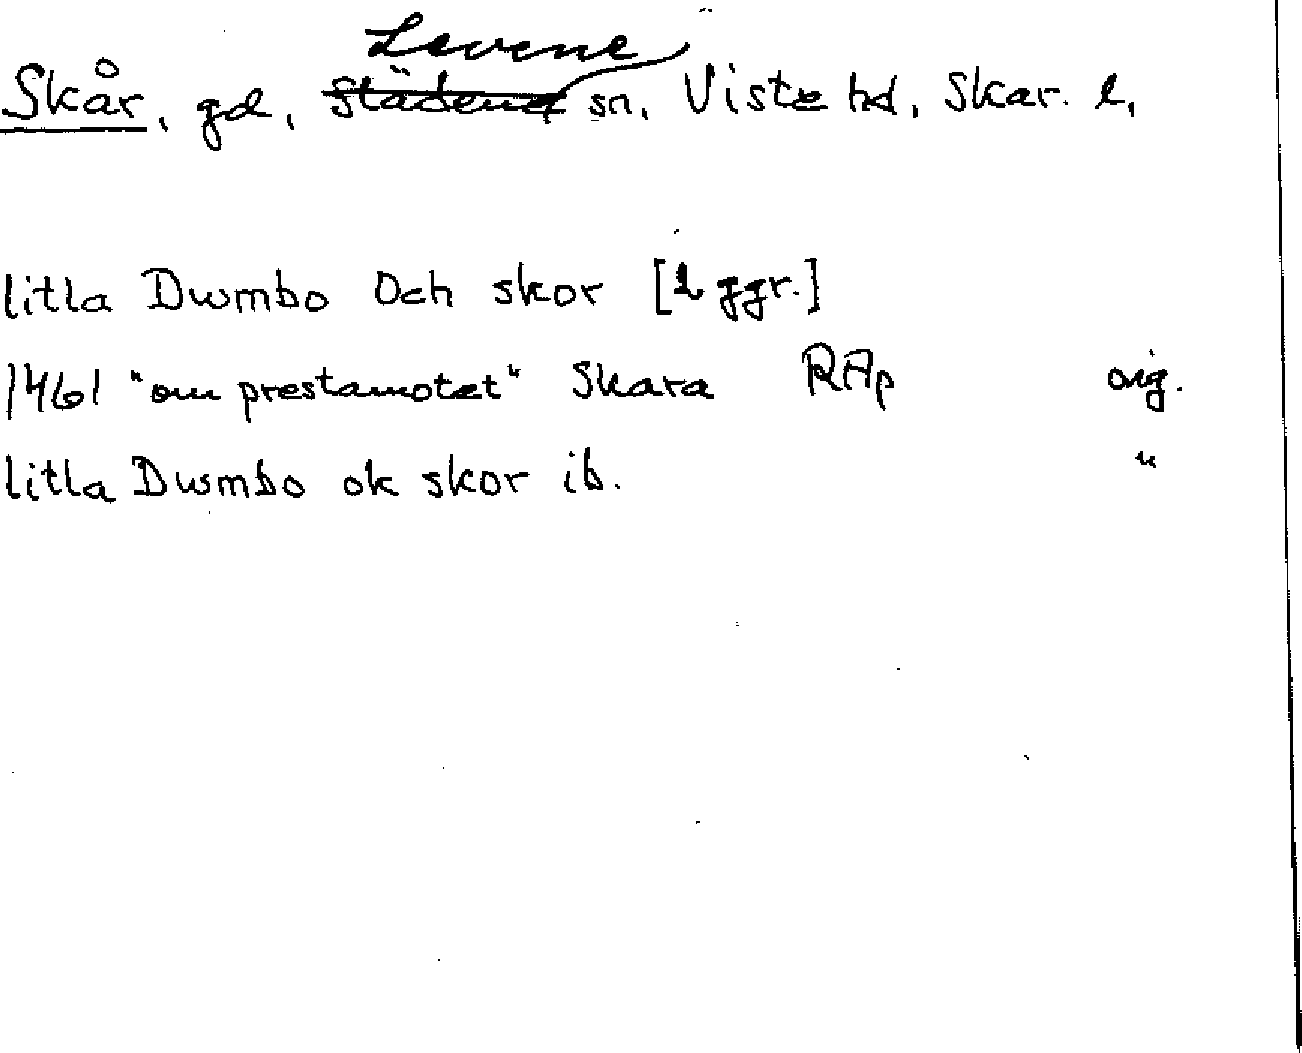 Levene
Skår, gd, Slädene sn, Viste hd, Skar. l,
litla Dwmbo Och skor [2 ggr.]
1461 "om prestamotet" Skara RAp orig.
litla Dwmbo ok skor ib. "